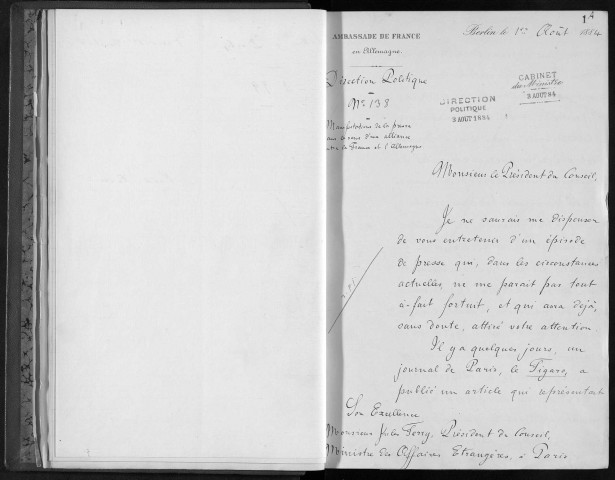 1
AMBASSADE DE FRANCE
en Allemagne.
Berlin le 1er Août 1884
Direction Politique
N° 138
CABINET
du Ministre
2 AOUT 84
DIRECTION
POLITIQUE
3 AOUT 1884
Manifestations de la presse
d'une alliance
entre la France et l'Allemagne
Monsieur le Président du Conseil,
Je ne saurais me dispenser
de vous entretenir d'un épisode
de presse qui, dans les circonstances
actuelles, ne me parait pas tout
à-fait fortuit, et qui aura déjà,
sans doute, attiré votre attention
Il y a quelques jours, un
journal de Paris, le Figaro, a
publié un article qui représentait
Son Excellence
Monsieur Jules Ferry, Président du Conseil,
Ministre des Affaires Etrangères, à Paris